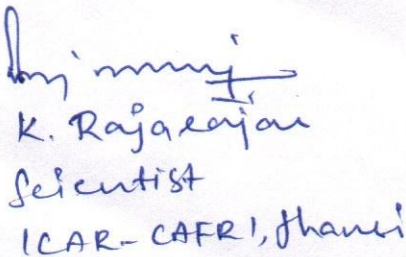 K. Rajarajan
Scientist
ICAR-CAFRI, Jhansi